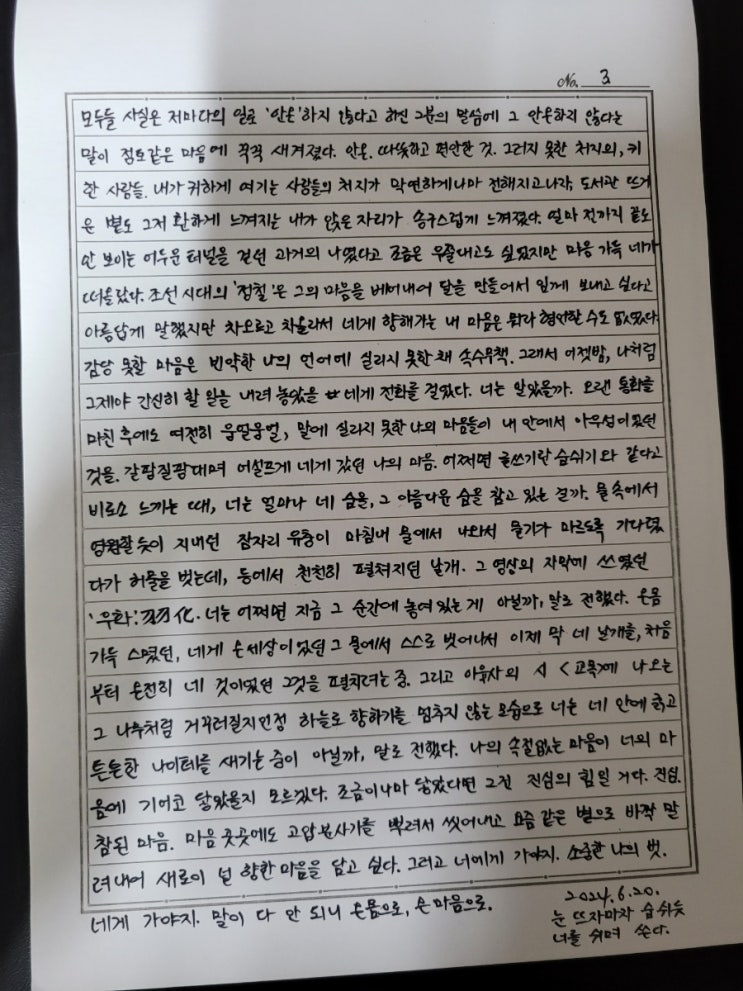 No. 3
모두들 사실은 저마다의 일로 '안온'하지 않다고 하신 그분의 말씀에 그 안온하지 않다는
말이 점토같은 마음에 꾹꾹 새겨졌다. 안온. 따뜻하고 편안한 것. 그러지 못한 처지의, 귀
한 사람들. 내가 귀하게 여기는 사람들의 처지가 막연하게나마 전해지고나자, 도서관 뜨거
운 볕도 그저 환하게 느껴지는 내가 앉은 자리가 송구스럽게 느껴졌다. 얼마 전까지 끝도
안 보이는 어두운 터널을 걷던 과거의 나였다고 조금은 우쭐대고도 싶었지만 마음 가득 네가
떠올랐다. 조선 시대의 '정철'은 그의 마음을 베어내어 달을 만들어서 임께 보내고 싶다고
아름답게 말했지만 차오르고 차올라서 네게 향해가는 내 마음은 뭐라 형언할 수도 없었다.
감당 못할 마음은 빈약한 나의 언어에 실리지 못한채 속수무책. 그래서 어젯밤, 나처럼
그제야 간신히 할 일을 내려 놓았을 너에게 전화를 걸었다. 너는 알았을까. 오랜 통화를
마친 후에도 여전히 웅얼웅얼, 말에 실리지 못한 나의 마음들이 내 안에서 아우성이었던
것을. 갈팡질팡대며 어설프게 네게 갔던 나의 마음. 어쩌면 글쓰기란 숨쉬기와 같다고
비로소 느끼는 때, 너는 얼마나 네 숨을, 그 아름다운 숨을 참고 있는 걸까. 물속에서
영원할듯이 지내던 잠자리 유충이 마침내 물에서 나와서 물기가 마르도록 기다렸
다가 허물을 벗는데, 등에서 천천히 펼쳐지던 날개. 그 영상의 자막에 쓰였던
'우화: 羽化. 너는 어쩌면 지금 그 순간에 놓여있는 게 아닐까, 말로 전했다. 온몸
가득 스몄던, 네게 온세상이었던 그 물에서 스스로 벗어나서 이제 막 네 날개를, 처음
부터 온전히 네 것이었던 그것을 펼치려는 중. 그리고 이육사의 시 <교목>에 나오는
그 나무처럼 거꾸러질지언정 하늘로 향하기를 멈추지 않는 모습으로 너는 네 안에 굵고
튼튼한 나이테를 새기는 중이 아닐까, 말로 전했다. 나의 속절없는 마음이 너의 마
음에 기어코 닿았을지 모르겠다. 조금이나마 닿았다면 그건 진심의 힘일 거다. 진심.
참된 마음. 마음 곳곳에도 고압분사기를 뿌려서 씻어내고 요즘 같은 볕으로 바짝 말
려내어 새로이 널 향한 마음을 담고 싶다. 그러고 너에게 가야지. 소중한 나의 벗.
네게 가야지. 말이 다 안 되니 온몸으로, 온 마음으로.
2024.6.20.
눈 뜨자마자 숨쉬듯
너를 쉬며 쓴다.